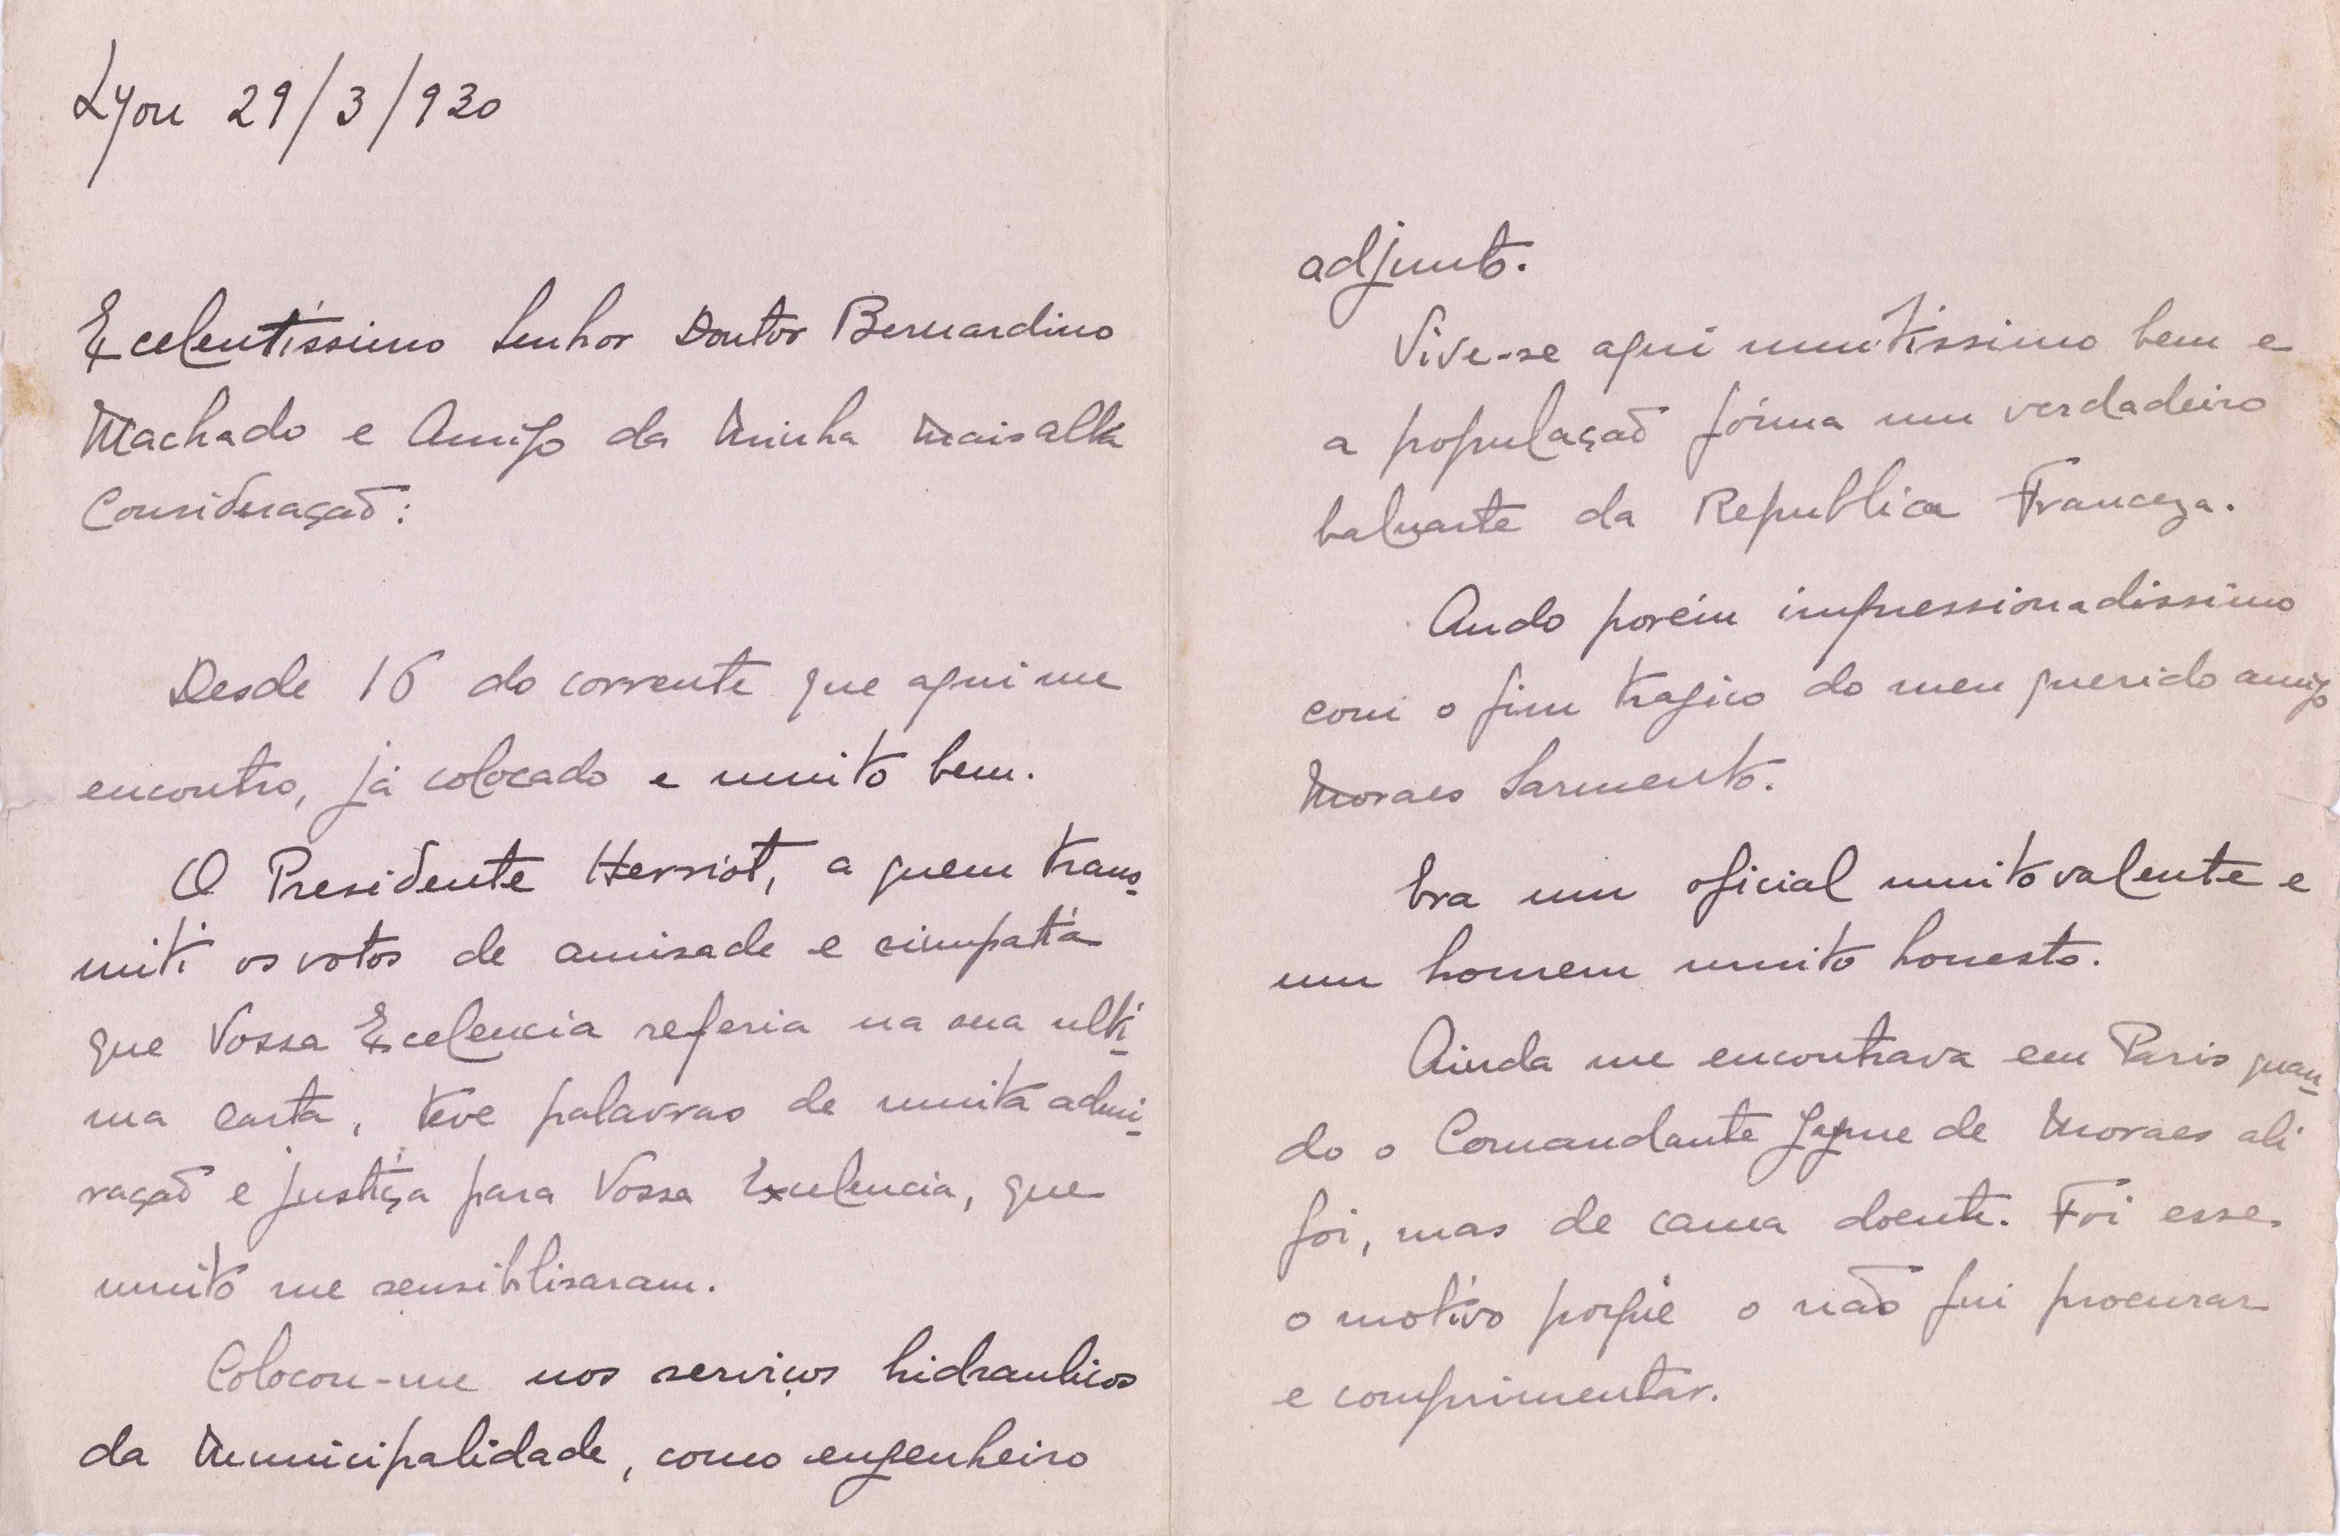 Lyon 29/3/930
Excelentíssimo Senhor Doutor Bernardino
Machado e Amigo da Minha Mais alta
Consideração:
Desde 16 do corrente que aqui me
encontro, já colocado e muito bem.
O Presidente Herriot, a quem trans-
miti os votos de amisade e simpatía
que Vossa Excelencia referia na sua ulti-
ma carta, teve palavras de muita admi-
ração e justiça para Vossa Excelencia, que
muito me sensiblisaram.
Colocou-me nos serviços hidraulicos
da Municipalidade, como engenheiro
adjunto.
Vive-se aqui muitissimo bem e
a população fórma um verdadeiro
baluarte da Republica Franceza.
Ando porém impressionadissimo
com o fim tragico do meu querido amigo
Moraes Sarmento.
Era um oficial muito valente e
um homem muito honesto.
Ainda me encontrava em Paris quan-
do o Comandante Jayme de Moraes ali
foi, mas de cama doente. Foi esse
o motivo porquê o não fui procurar
e comprimentar.